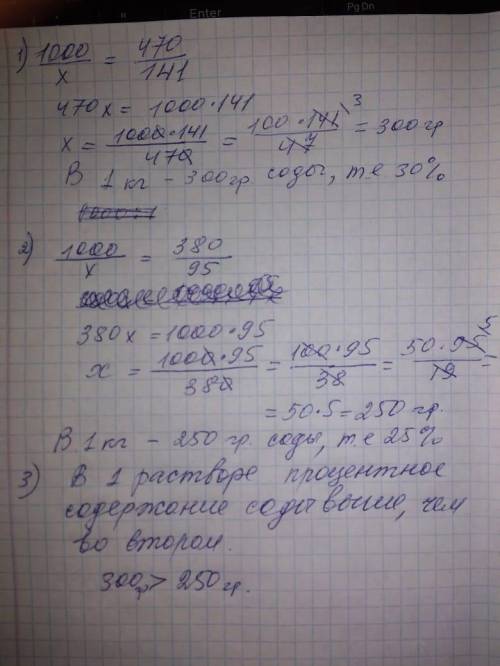 Enter PgDn
1) 1000/x = 470/141
470x = 1000·141
x = 1000·141/470 = 100·141/47 3 = 300гр
В 1 кг - 300гр. соды, т.е 30%
2) 1000/x = 380/95
380x = 1000·95
x = 1000·95/380 = 100·95/38 = 50·95/19 5 =
= 50·5 = 250 гр.
В 1 кг - 250 гр. соды, т.е 25%
3) В 1 растворе процентное
содержание соды выше, чем
во втором.
300гр > 250гр.